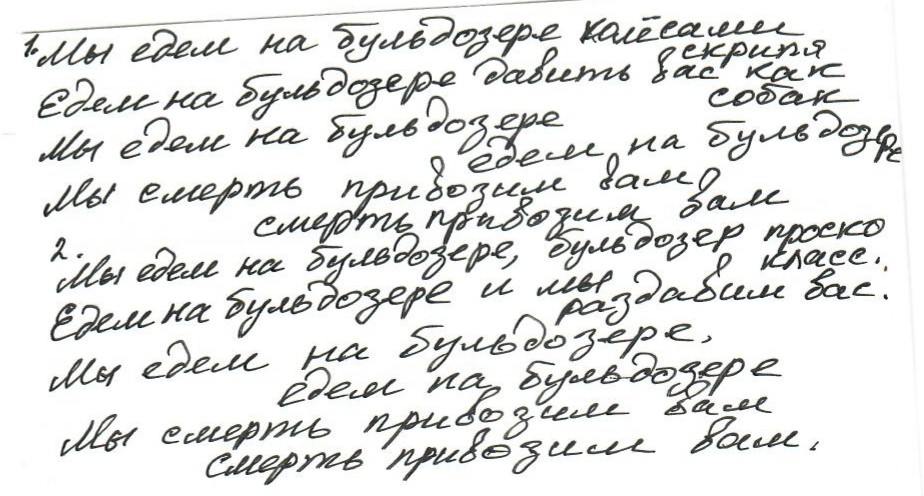 1. Мы едем на бульдозере колёсами
скрипя
Едем на бульдозере давить вас как
собак
Мы едем на бульдозере
едем на бульдозере
Мы смерть привозим вам,
смерть привозим вам
2.
Мы едем на бульдозере, бульдозер проско
класс.
Едем на бульдозере и мы
раздавим вас.
Мы едем на бульдозере,
едем на бульдозере
Мы смерть привозим вам
смерть привозим вам.